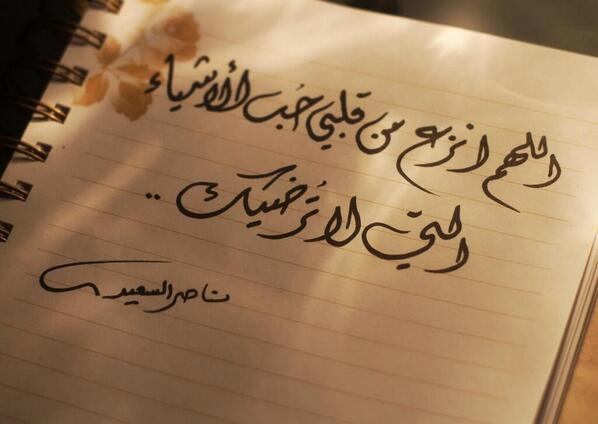 اللهم انزع من قلبي حُب ألاشياء
التي لا تُرضيك ..
ناصر السعيدي